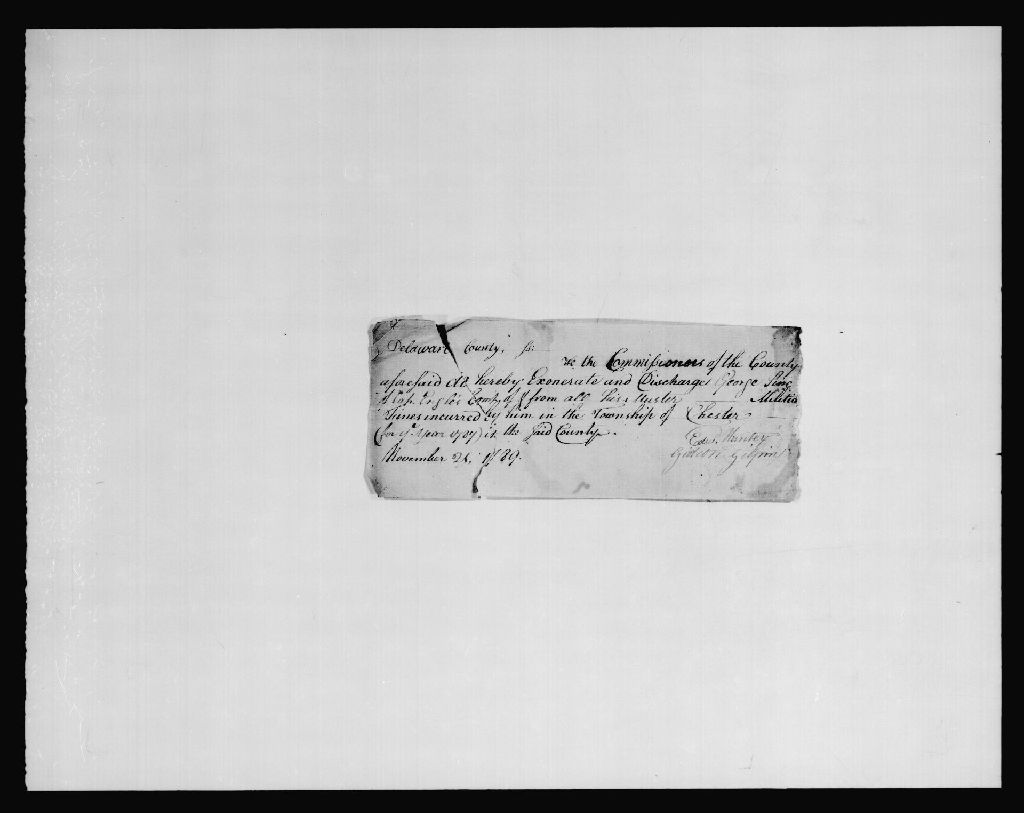 Delaware County, ss.
We the Commissioners of the County
aforesaid do hereby Exonerate and Discharge George
from all his Muster Militia
Fines incurred by him in the Township of Chester
(for ye Year 1787) in the said County.
November 24, 1789.
Edwd. Hunter
Gideon Gilpin